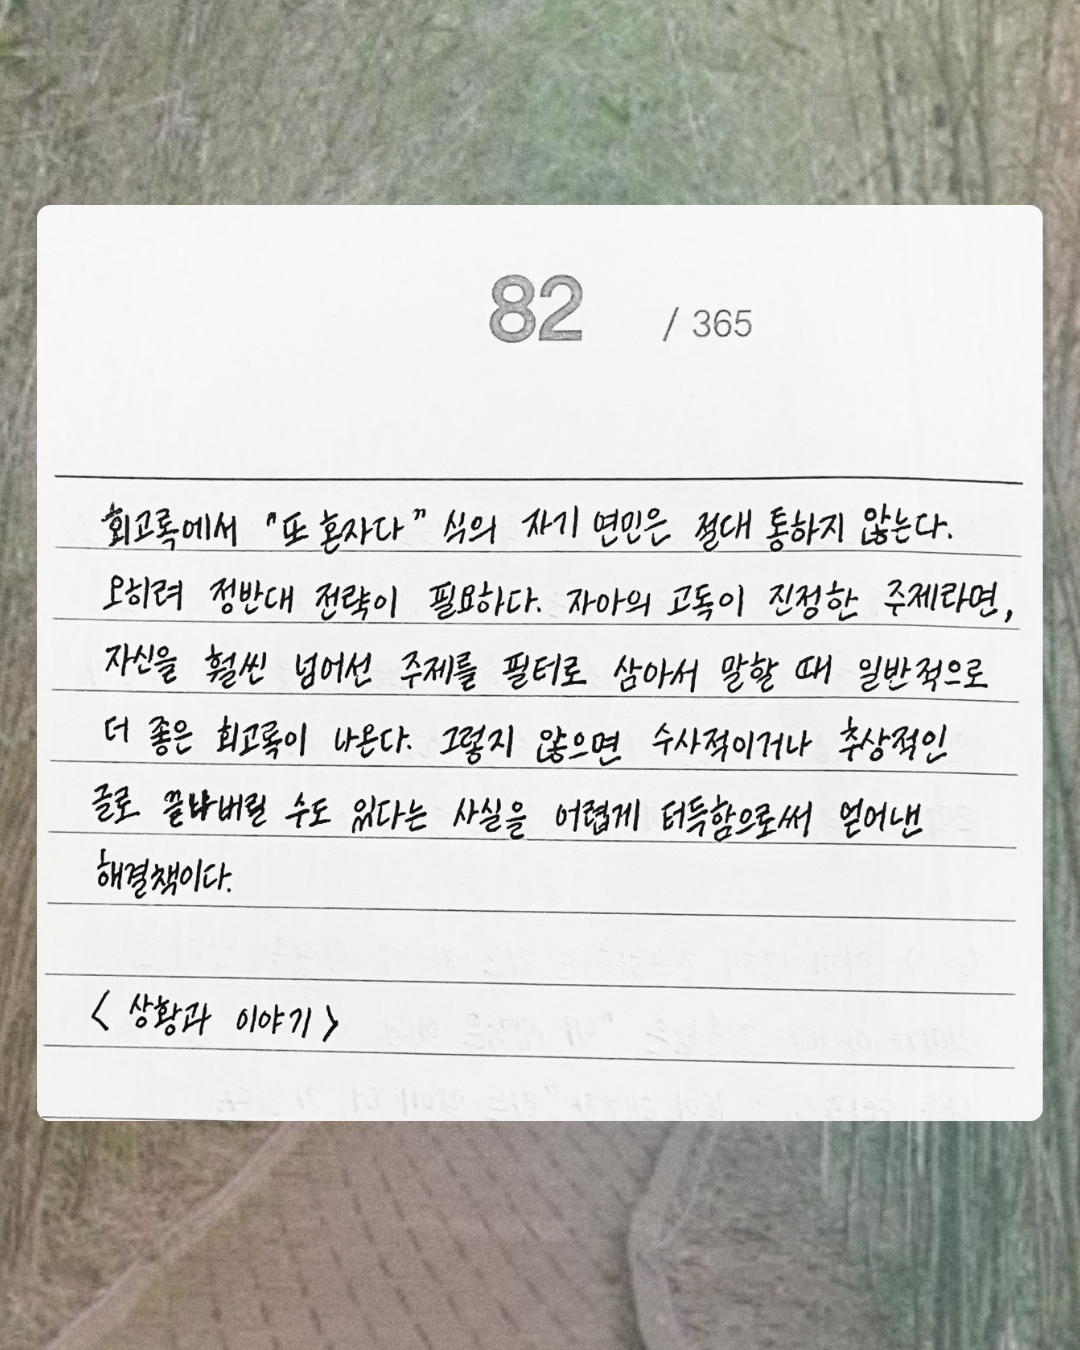 82 / 365
회고록에서 "또 혼자다" 식의 자기 연민은 절대 통하지 않는다.
오히려 정반대 전략이 필요하다. 자아의 고독이 진정한 주제라면,
자신을 훨씬 넘어선 주제를 필터로 삼아서 말할 때 일반적으로
더 좋은 회고록이 나온다. 그렇지 않으면 수사적이거나 추상적인
글로 끝나버릴 수도 있다는 사실을 어렵게 터득함으로써 얻어낸
해결책이다.
< 상황과 이야기 >